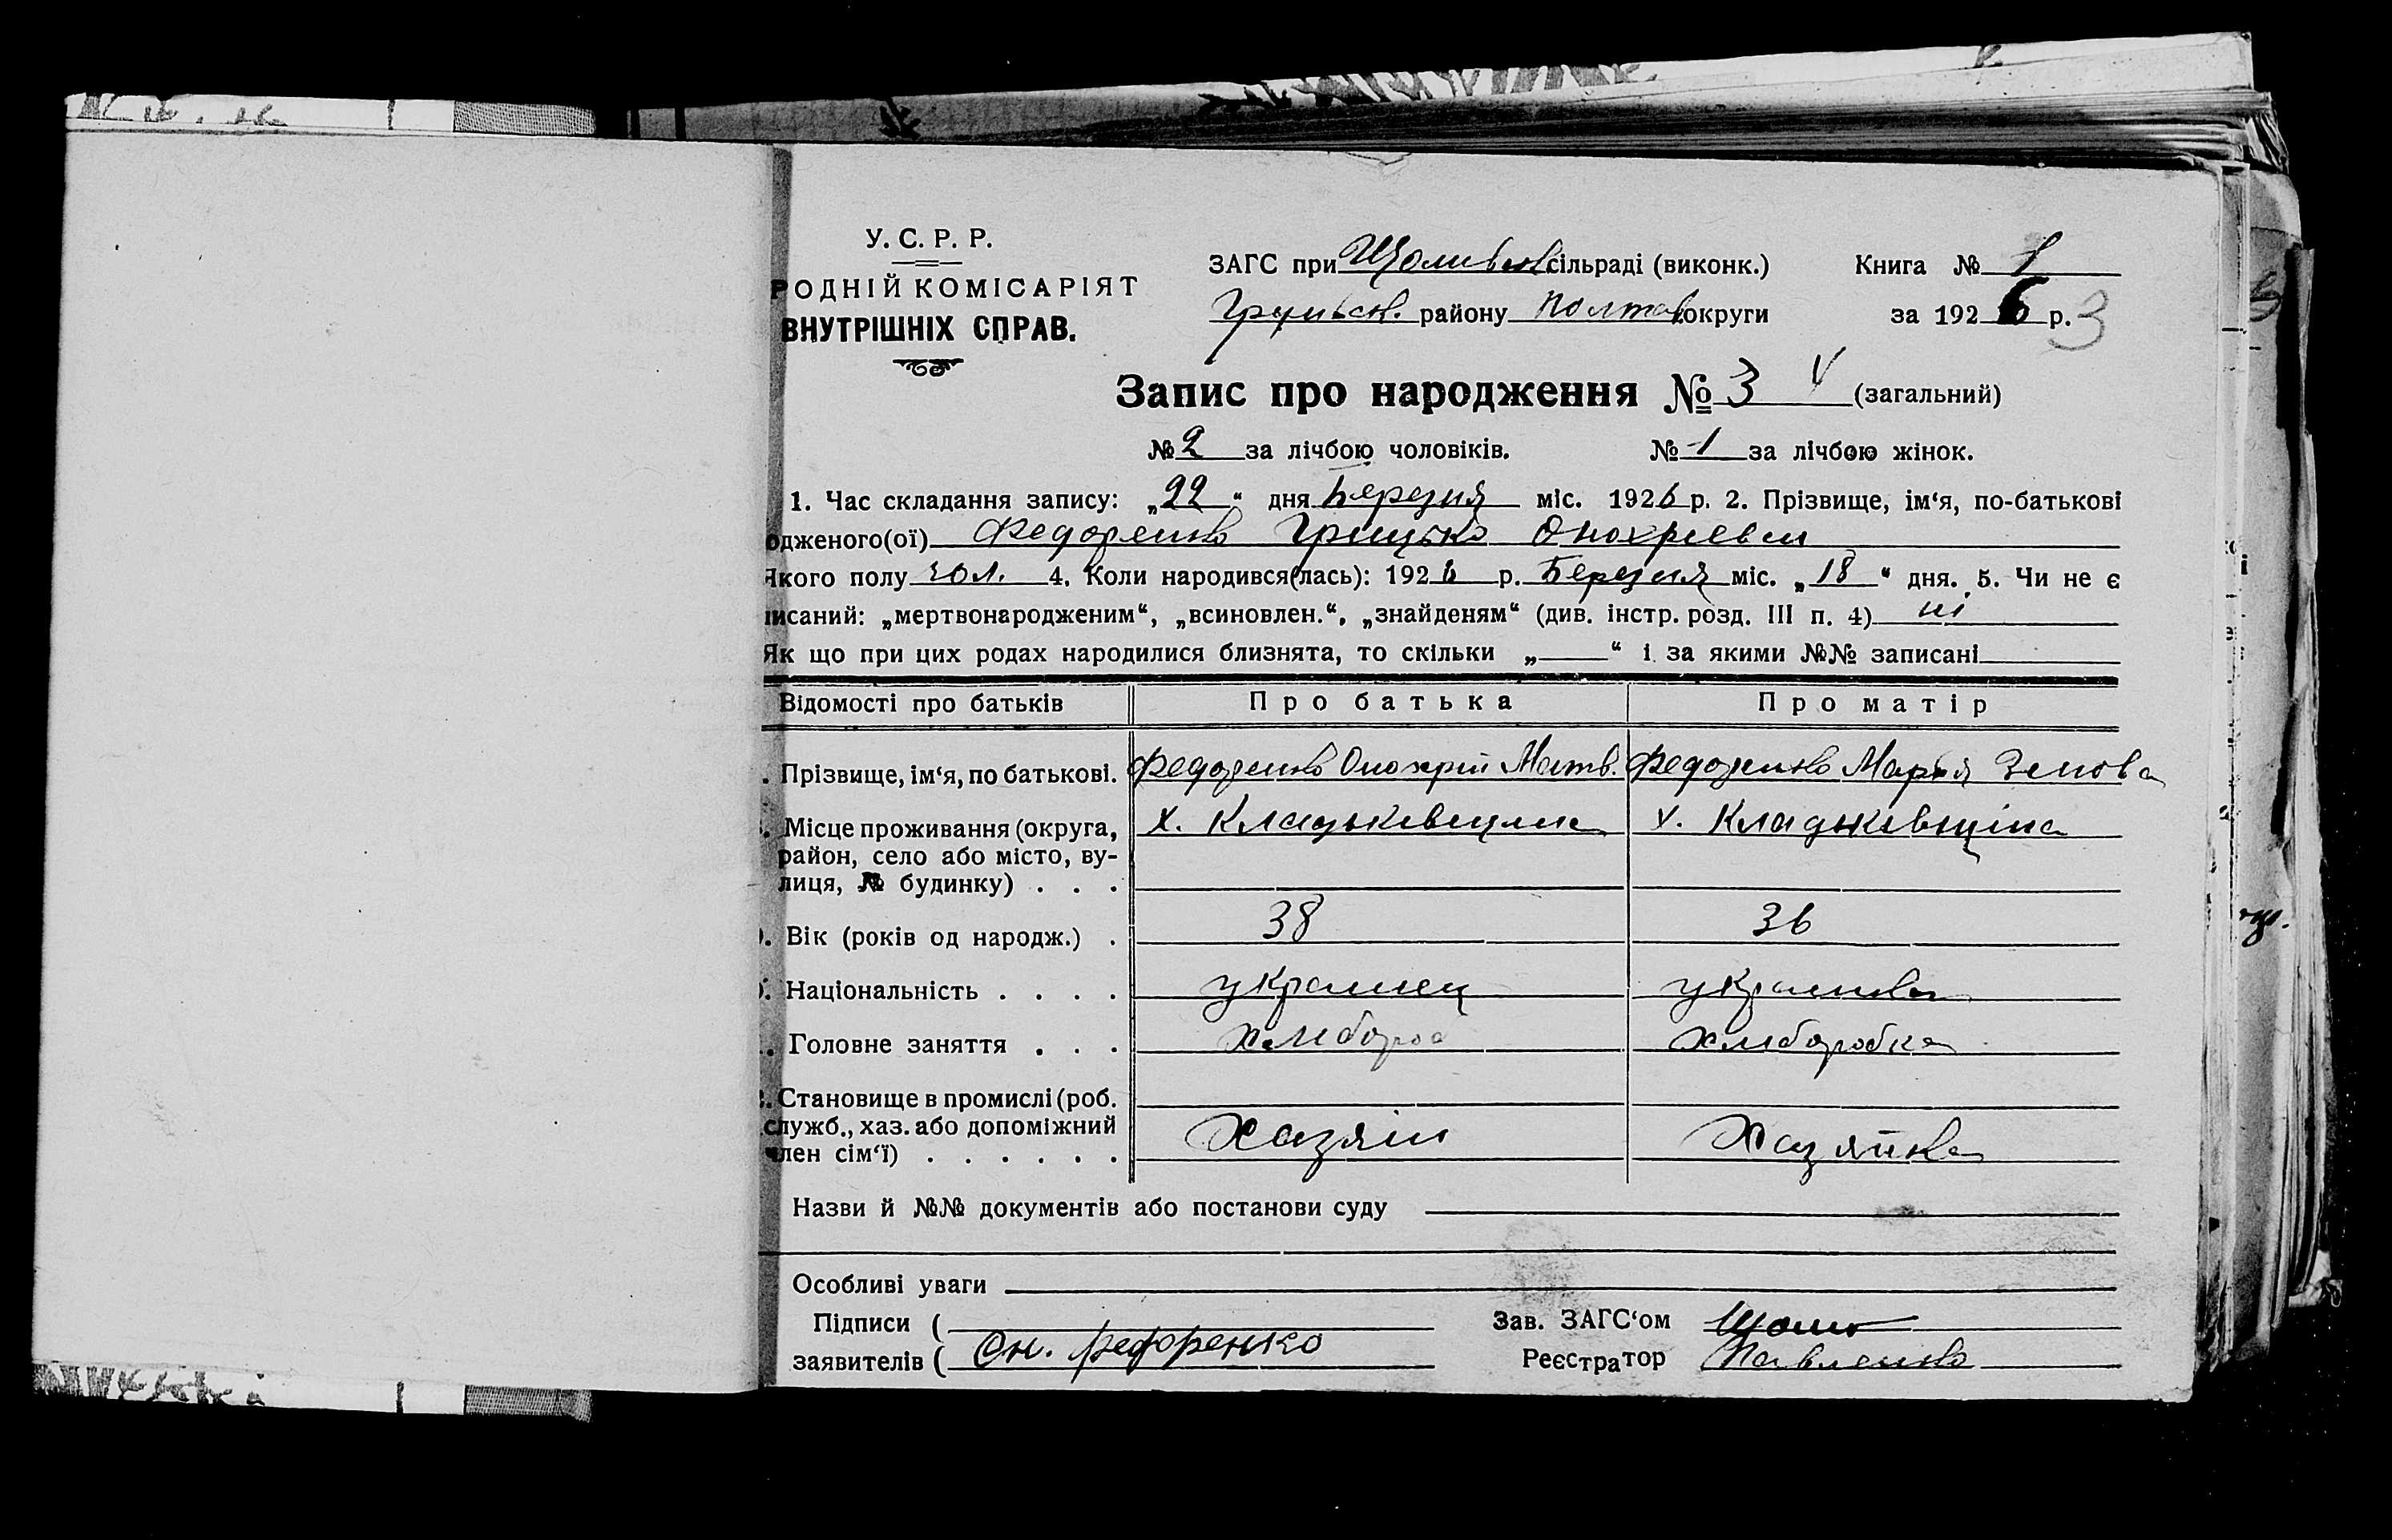 У. С. Р. Р.
РОДНІЙ КОМІСАРІЯТ
ВНУТРІШНІХ СПРАВ.
ЗАГС при сільраді (виконк.) Книга № 1
району Полтав. округи за 1926 р. 3
Запис про народження № 3 (загальний)
№ 2 за лічбою чоловіків. № 1 за лічбою жінок.
1. Час складання запису: „22“ дня Березня міс. 1926 р. 2. Прізвище, ім‘я, по-батькові
одженого(ої) Федоренко Грицько Онохрієвич
Якого полу чол. 4. Коли народився(лась): 1926 р. Березня міс. „18“ дня. 5. Чи не є
исаний: „мертвонародженим“, „всиновлен.“, „знайденям“ (див. інстр. розд. III п. 4) ні
Як що при цих родах народилися близнята, то скільки „ “ і за якими №№ записані
Відомості про батьків Про батька Про матір
. Прізвище, ім‘я, по батькові. Федоренко Онохрій Матв. Федоренко Марья Зенова
. Місце проживання (округа, х. Кладьківщина х. Кладьківщіна
район, село або місто, ву-
лиця, № будинку) . . .
. Вік (років од народж.) . 38 36
. Національність . . . . украинец украинка
. Головне заняття . . . Хлибороб Хлиборобка
. Становище в промислі (роб.
служб., хаз. або допоміжний Хазяін Хазяйка
член сім‘ї) . . . . . .
Назви й №№ документів або постанови суду
Особливі уваги
Підписи ( Зав. ЗАГС‘ом
заявителів ( Он. Федоренко Реєстратор Павленко